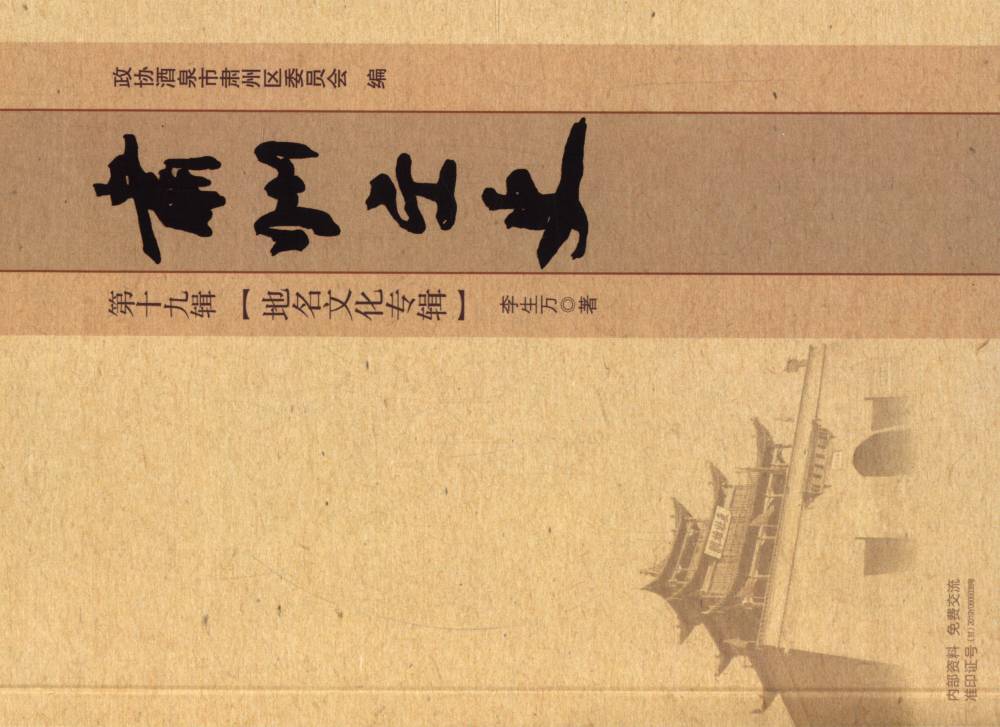 政协酒泉市肃州区委员会 编
肃州文史
第十九辑【地名文化专辑】 李生万◎著
内部资料 免费交流
准印证号